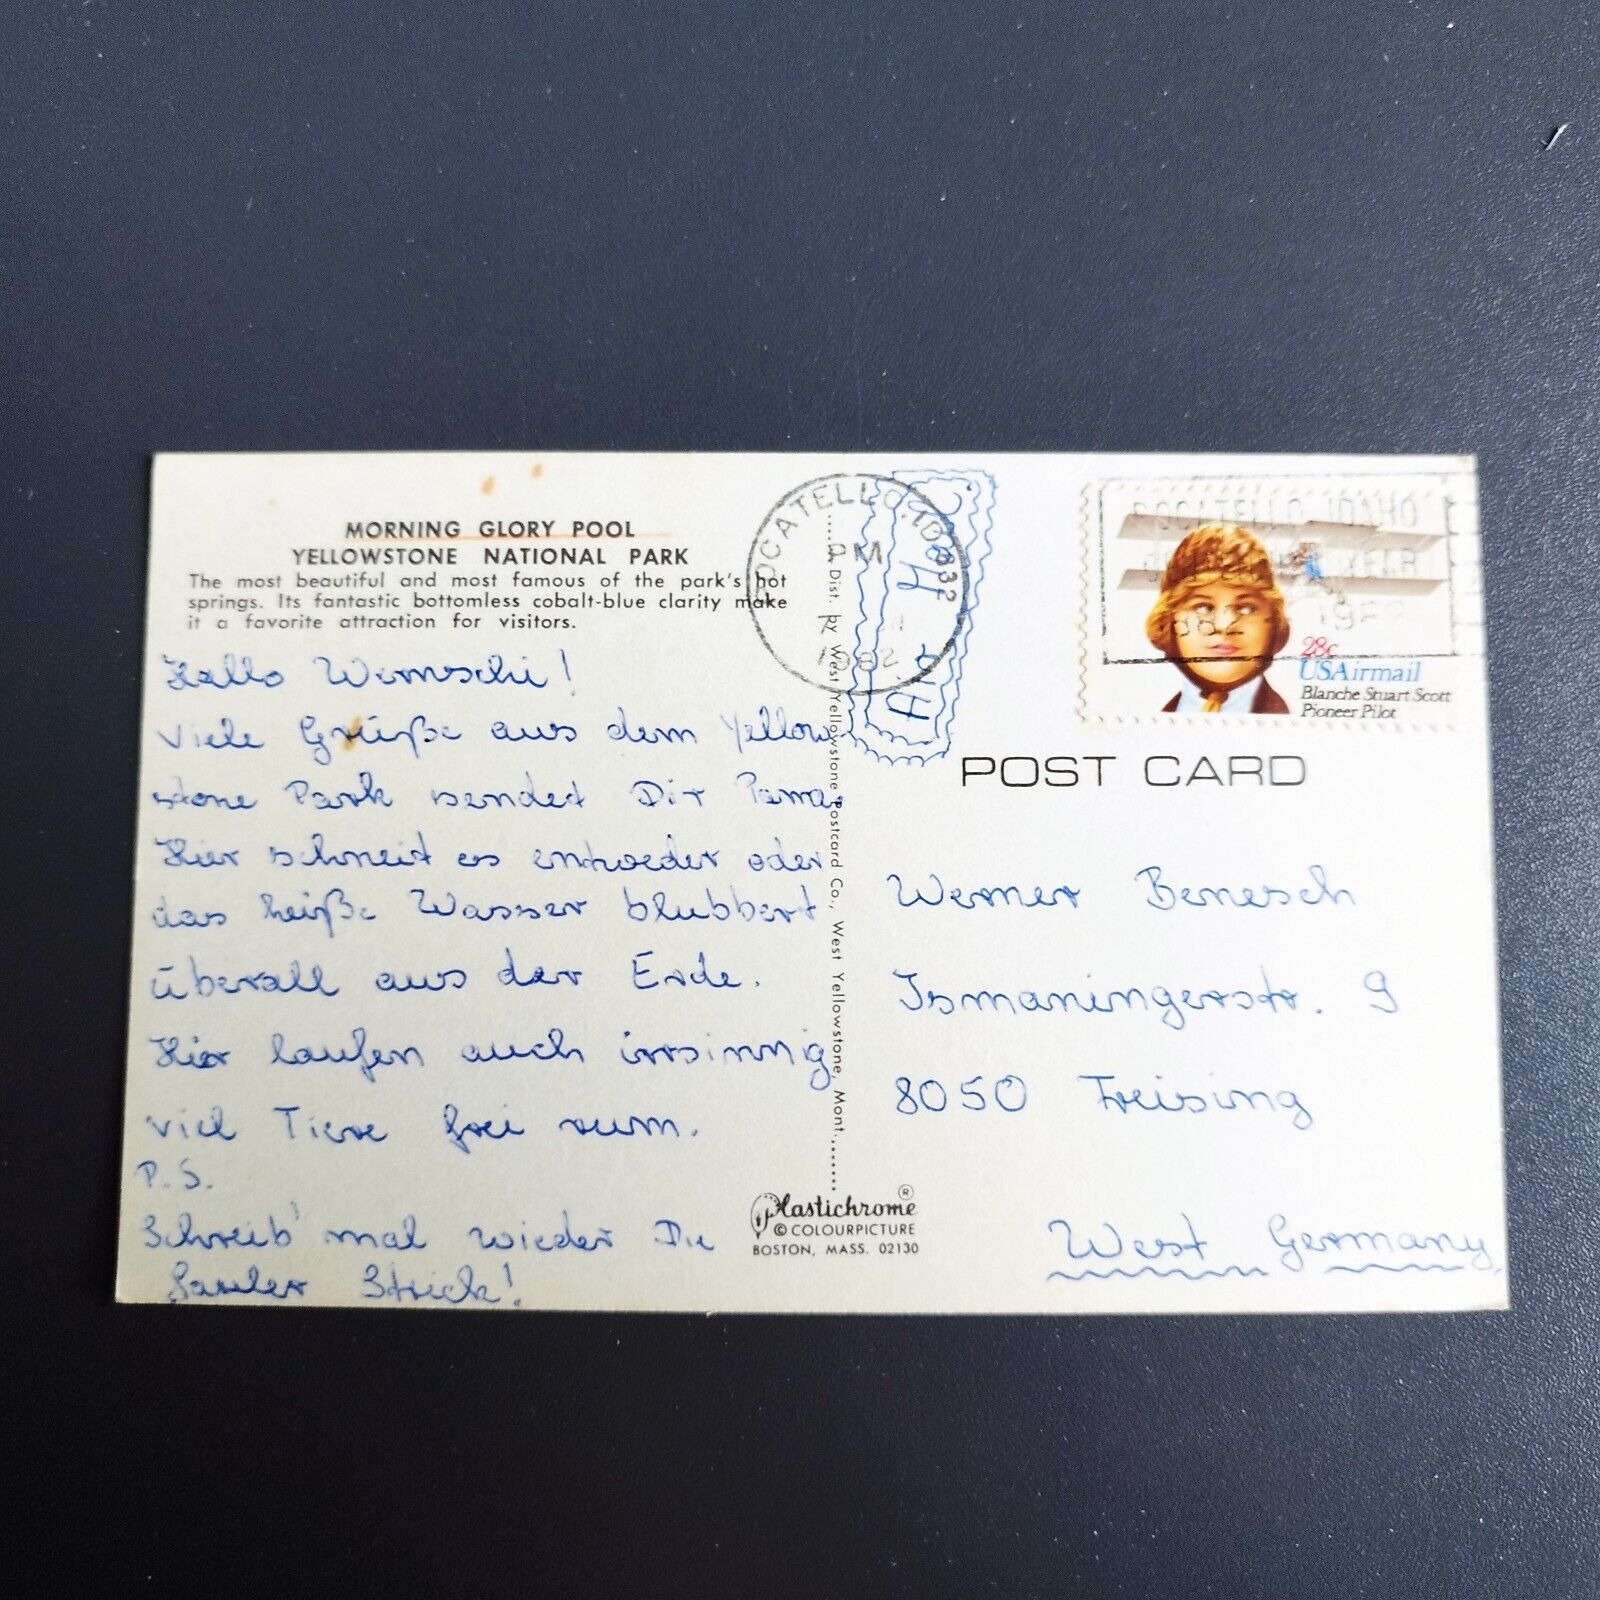 MORNING GLORY POOL
YELLOWSTONE NATIONAL PARK
The most beautiful and most famous of the park's hot
springs. Its fantastic bottomless cobalt-blue clarity make
it a favorite attraction for visitors.
Hallo Wernschi!
Viele Grüße aus dem Yellow-
stone Park sendet Dir
Hier schneit es entweder oder
das heiße Wasser blubbert
überall aus der Erde.
Hier laufen auch irrsinnig
viel Tiere frei rum.
P.S.
Schreib' mal wieder Du
fauler Strick!
Dist. by West Yellowstone Postcard Co., West Yellowstone, Mont.
Plastichrome®
© COLOURPICTURE
BOSTON, MASS. 02130
POCATELLO, ID 832
PM
1982
AIR
POCATELLO IDAHO
1982
28c
USAirmail
Blanche Stuart Scott
Pioneer Pilot
POST CARD
Werner Benesch
Ismaningerstr. 9
8050 Freising
West Germany